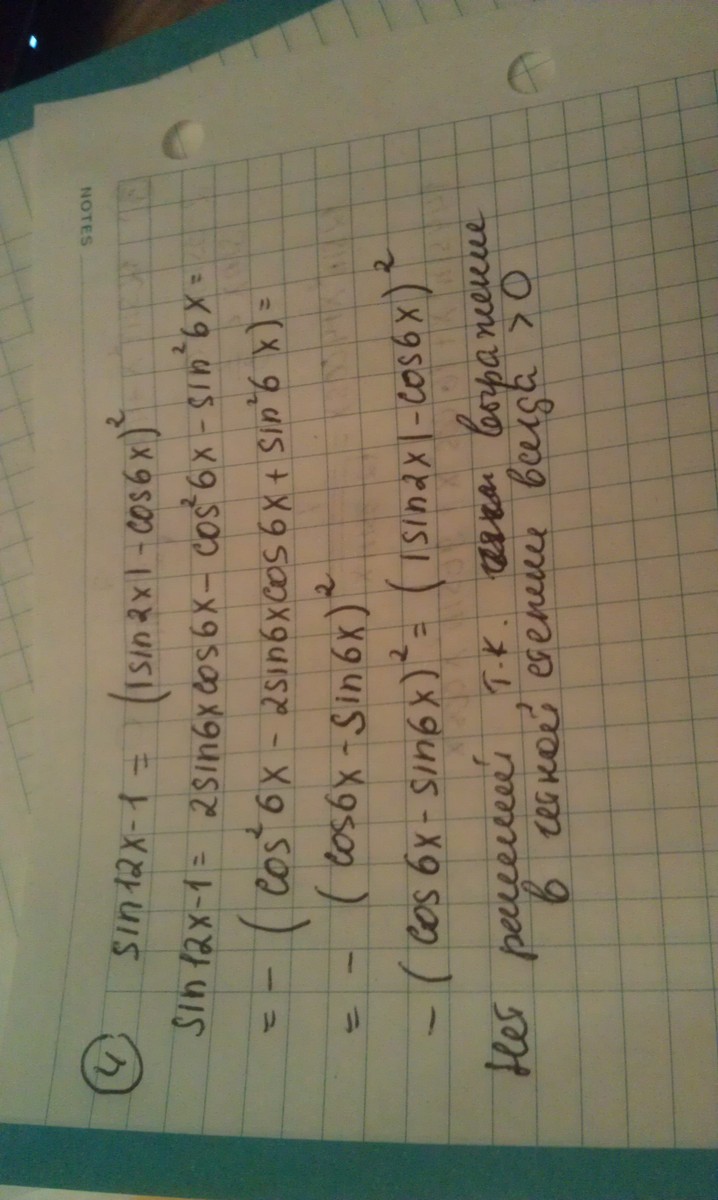 NOTES
④ sin12x-1 = (|sin2x|-cos6x)²
sin12x-1 = 2sin6xcos6x-cos²6x-sin²6x=
= - (cos²6x-2sin6xcos6x+sin²6x)=
= - (cos6x-sin6x)²
- (cos6x-sin6x)² = (|sin2x|-cos6x)²
Нет решений т.к. выражение
в четной степени всегда >0